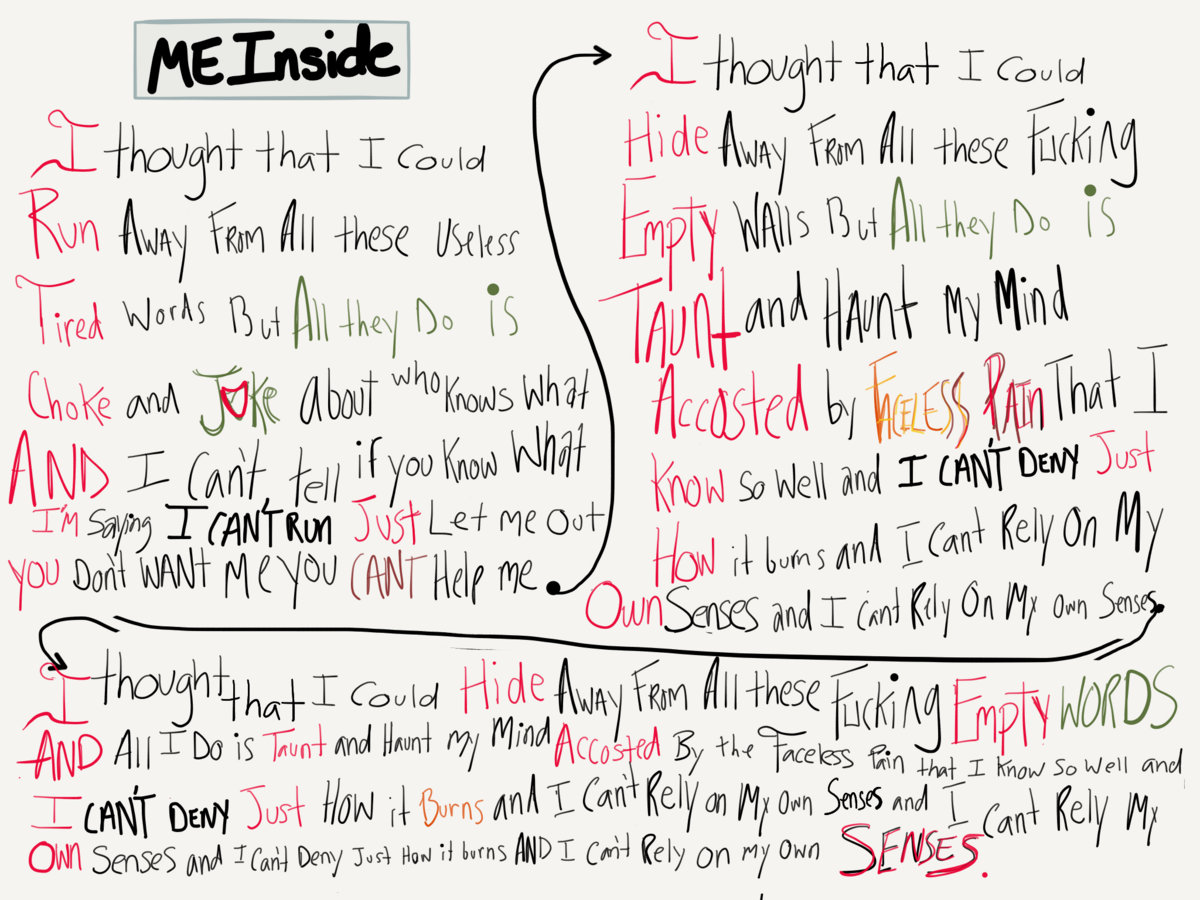 ME Inside
I thought that I Could
Run Away From All these Useless
Tired Words But All they Do is
Choke and Joke About who Knows What
AND I Can't tell if you Know What
I'm Saying I CAN'T RUN Just Let me Out
you Don't WANT Me You CANT Help me
I thought that I Could
Hide Away From All these Fucking
Empty Walls But All they Do is
Taunt and Haunt My Mind
Accosted by Faceless Pain That I
Know So Well and I CAN'T DENY Just
How it burns and I Cant Rely On My
Own Senses and I Cant Rely On My Own Senses
I thought that I Could Hide Away From All these Fucking Empty WORDS
AND All I Do is Taunt and Haunt My Mind Accosted By the Faceless Pain that I Know So Well and
I CAN'T DENY Just How it Burns and I Can't Rely on My Own Senses and I Cant Rely My
Own Senses and I Can't Deny Just How it burns AND I Can't Rely On my Own SENSES.